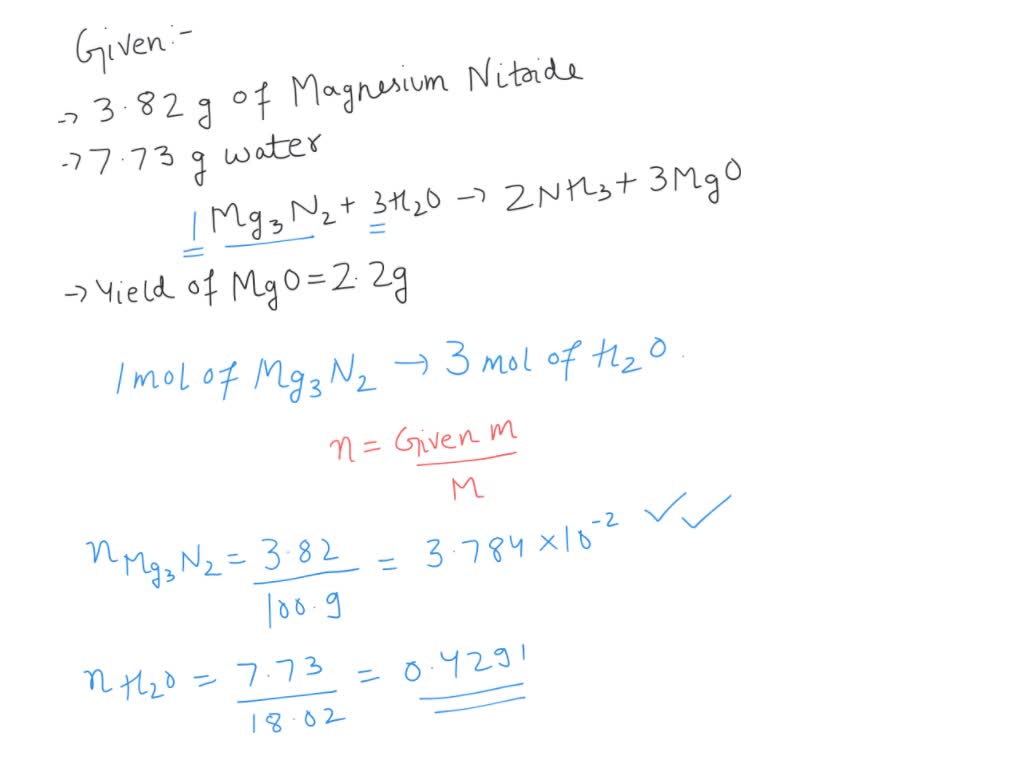 Given:-
→ 3.82 g of Magnesium Nitride
→ 7.73 g water
1 Mg₃N₂ + 3H₂O → 2NH₃ + 3MgO
→ Yield of MgO = 2.2g
1 mol of Mg₃N₂ → 3 mol of H₂O.
n = Given m
M
n Mg₃N₂ = 3.82 = 3.784 × 10⁻² ✓✓
100.9
n H₂O = 7.73 = 0.4291
18.02